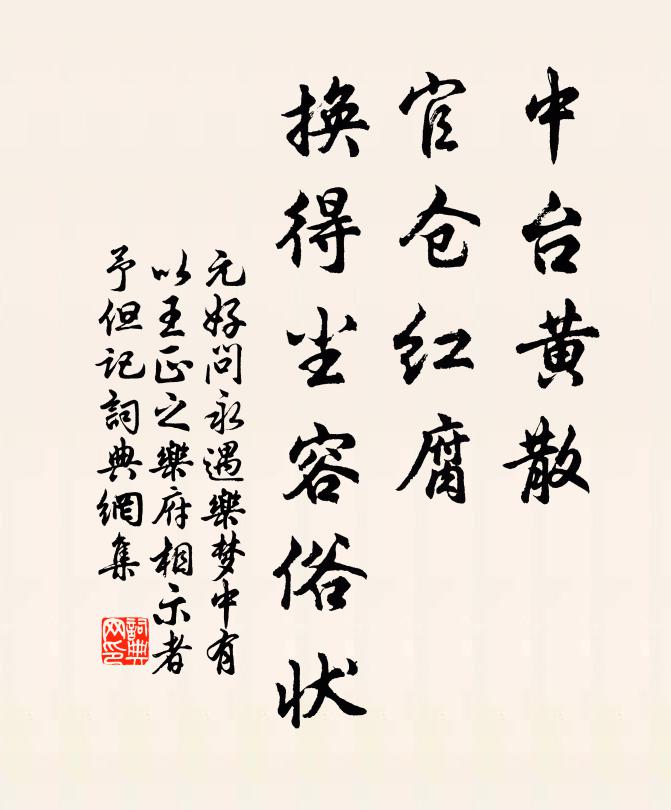 中台黄散
官仓红腐
换得尘容俗状
元好问永遇樂梦中有
以王正之樂府相示者
予但记詞典網集
詞典
网印